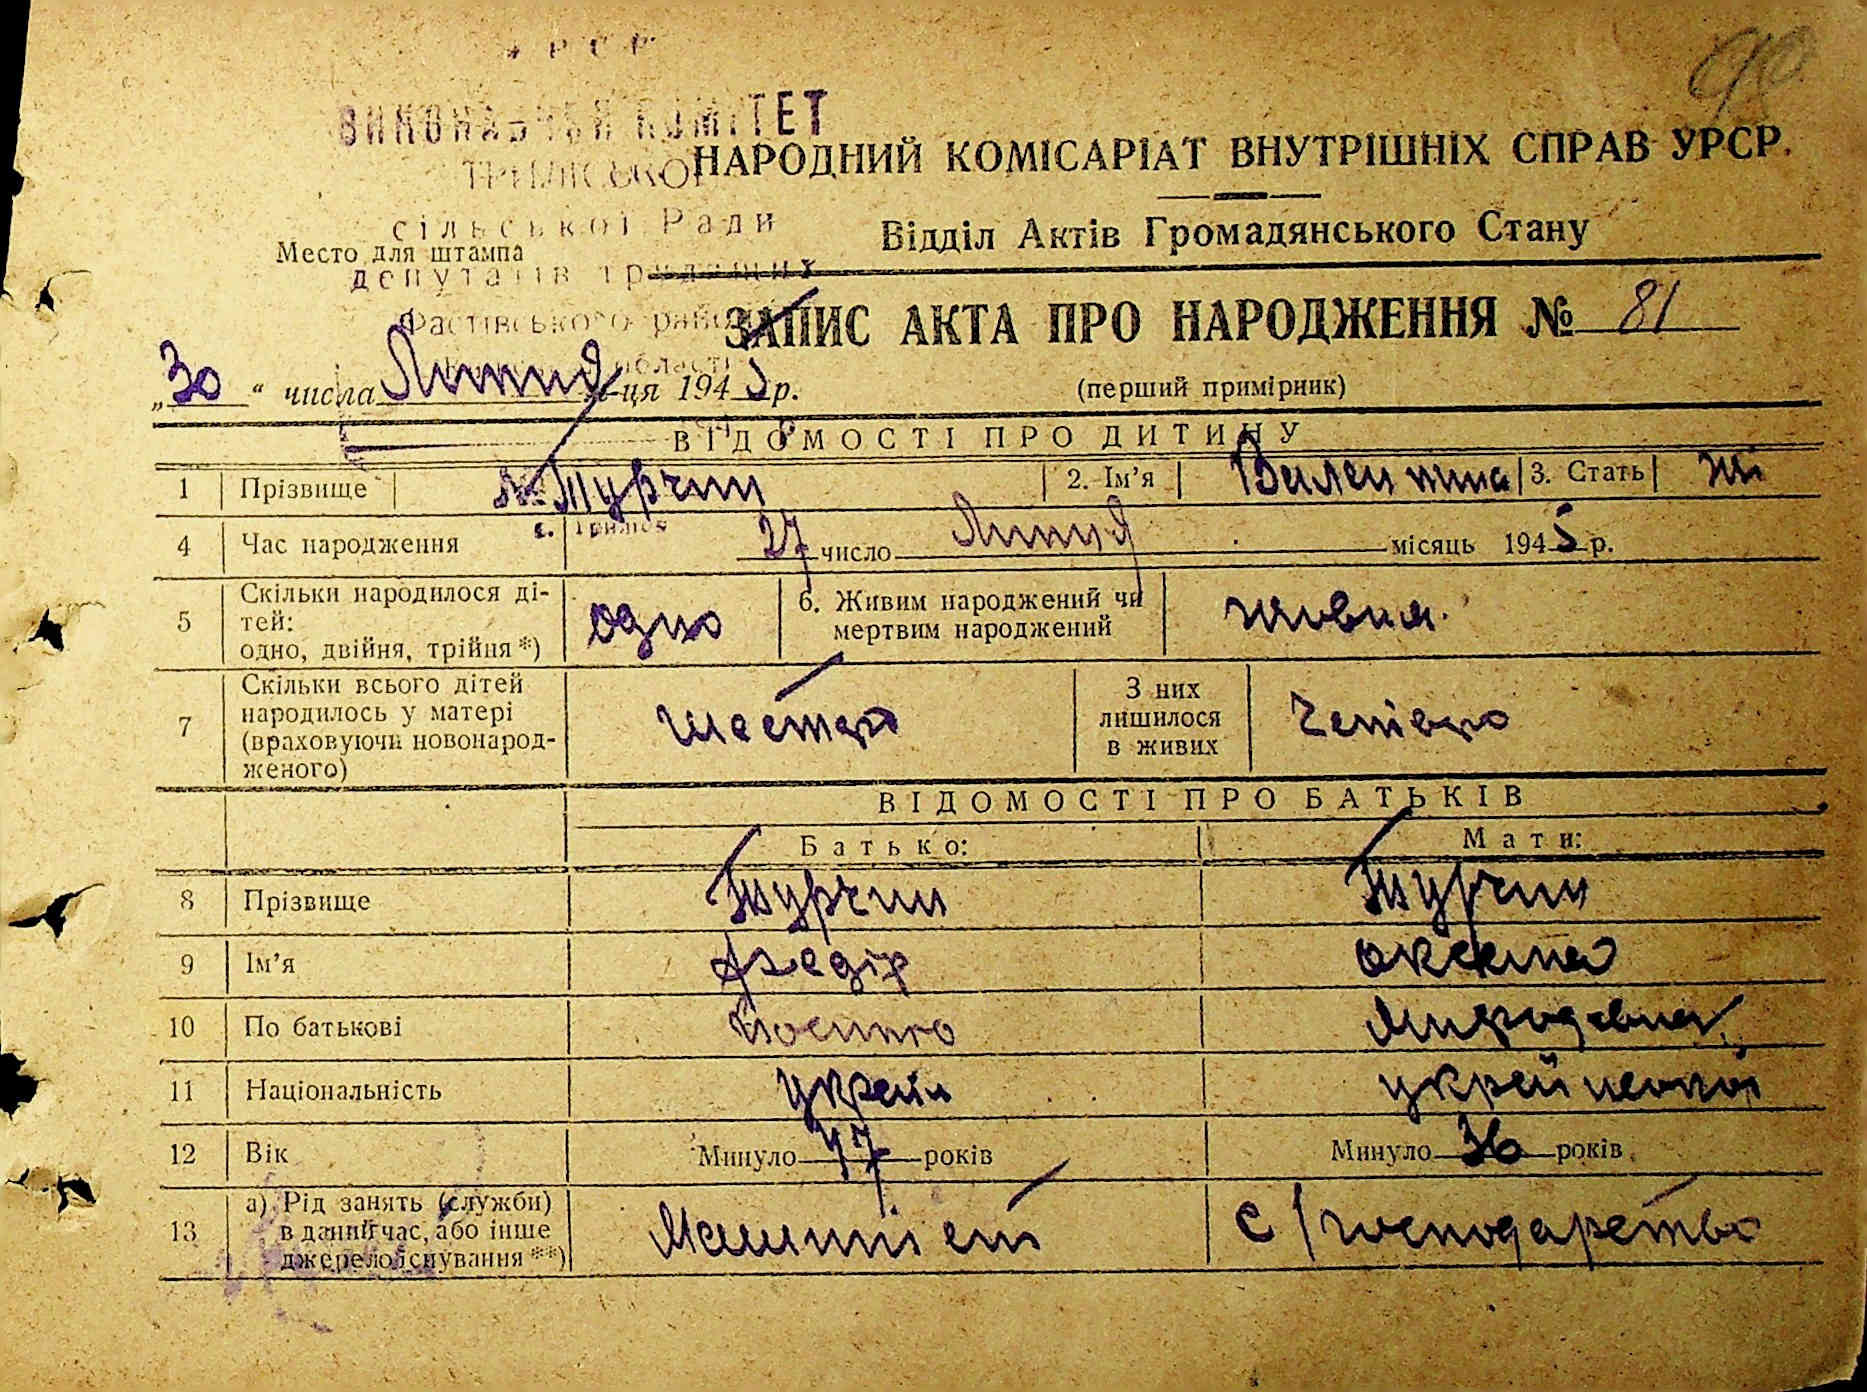 УРСР
98
ВИКОНАВЧИЙ КОМІТЕТ
ТРИЛІСЬКОЇ
НАРОДНИЙ КОМІСАРІАТ ВНУТРІШНІХ СПРАВ УРСР.
сільської Ради
Відділ Актів Громадянського Стану
Место для штампа
депутатів трудящих
Фастівського району
ЗАПИС АКТА ПРО НАРОДЖЕННЯ № 81
області
„30“ числа Липня м-ця 1945 р.
(перший примірник)
ВІДОМОСТІ ПРО ДИТИНУ
1 Прізвище Турчин 2. Ім’я Валентина 3. Стать жі
с. Триліси
4 Час народження 27 число Липня місяць 1945 р.
5 Скільки народилося ді-тей: одно, двійня, трійня *) одно 6. Живим народжений чи мертвим народжений живим.
7 Скільки всього дітей народилось у матері (враховуючи новонарод-женого) шестеро З них лишилося в живих Четверо
ВІДОМОСТІ ПРО БАТЬКІВ
Батько: Мати:
8 Прізвище Турчин Турчин
9 Ім’я Федір
10 По батькові
11 Національність україн
12 Вік Минуло 47 років Минуло 36 років
13 а) Рід занять (служби) в даний час, або інше джерело існування **) Машиніст с/господарство